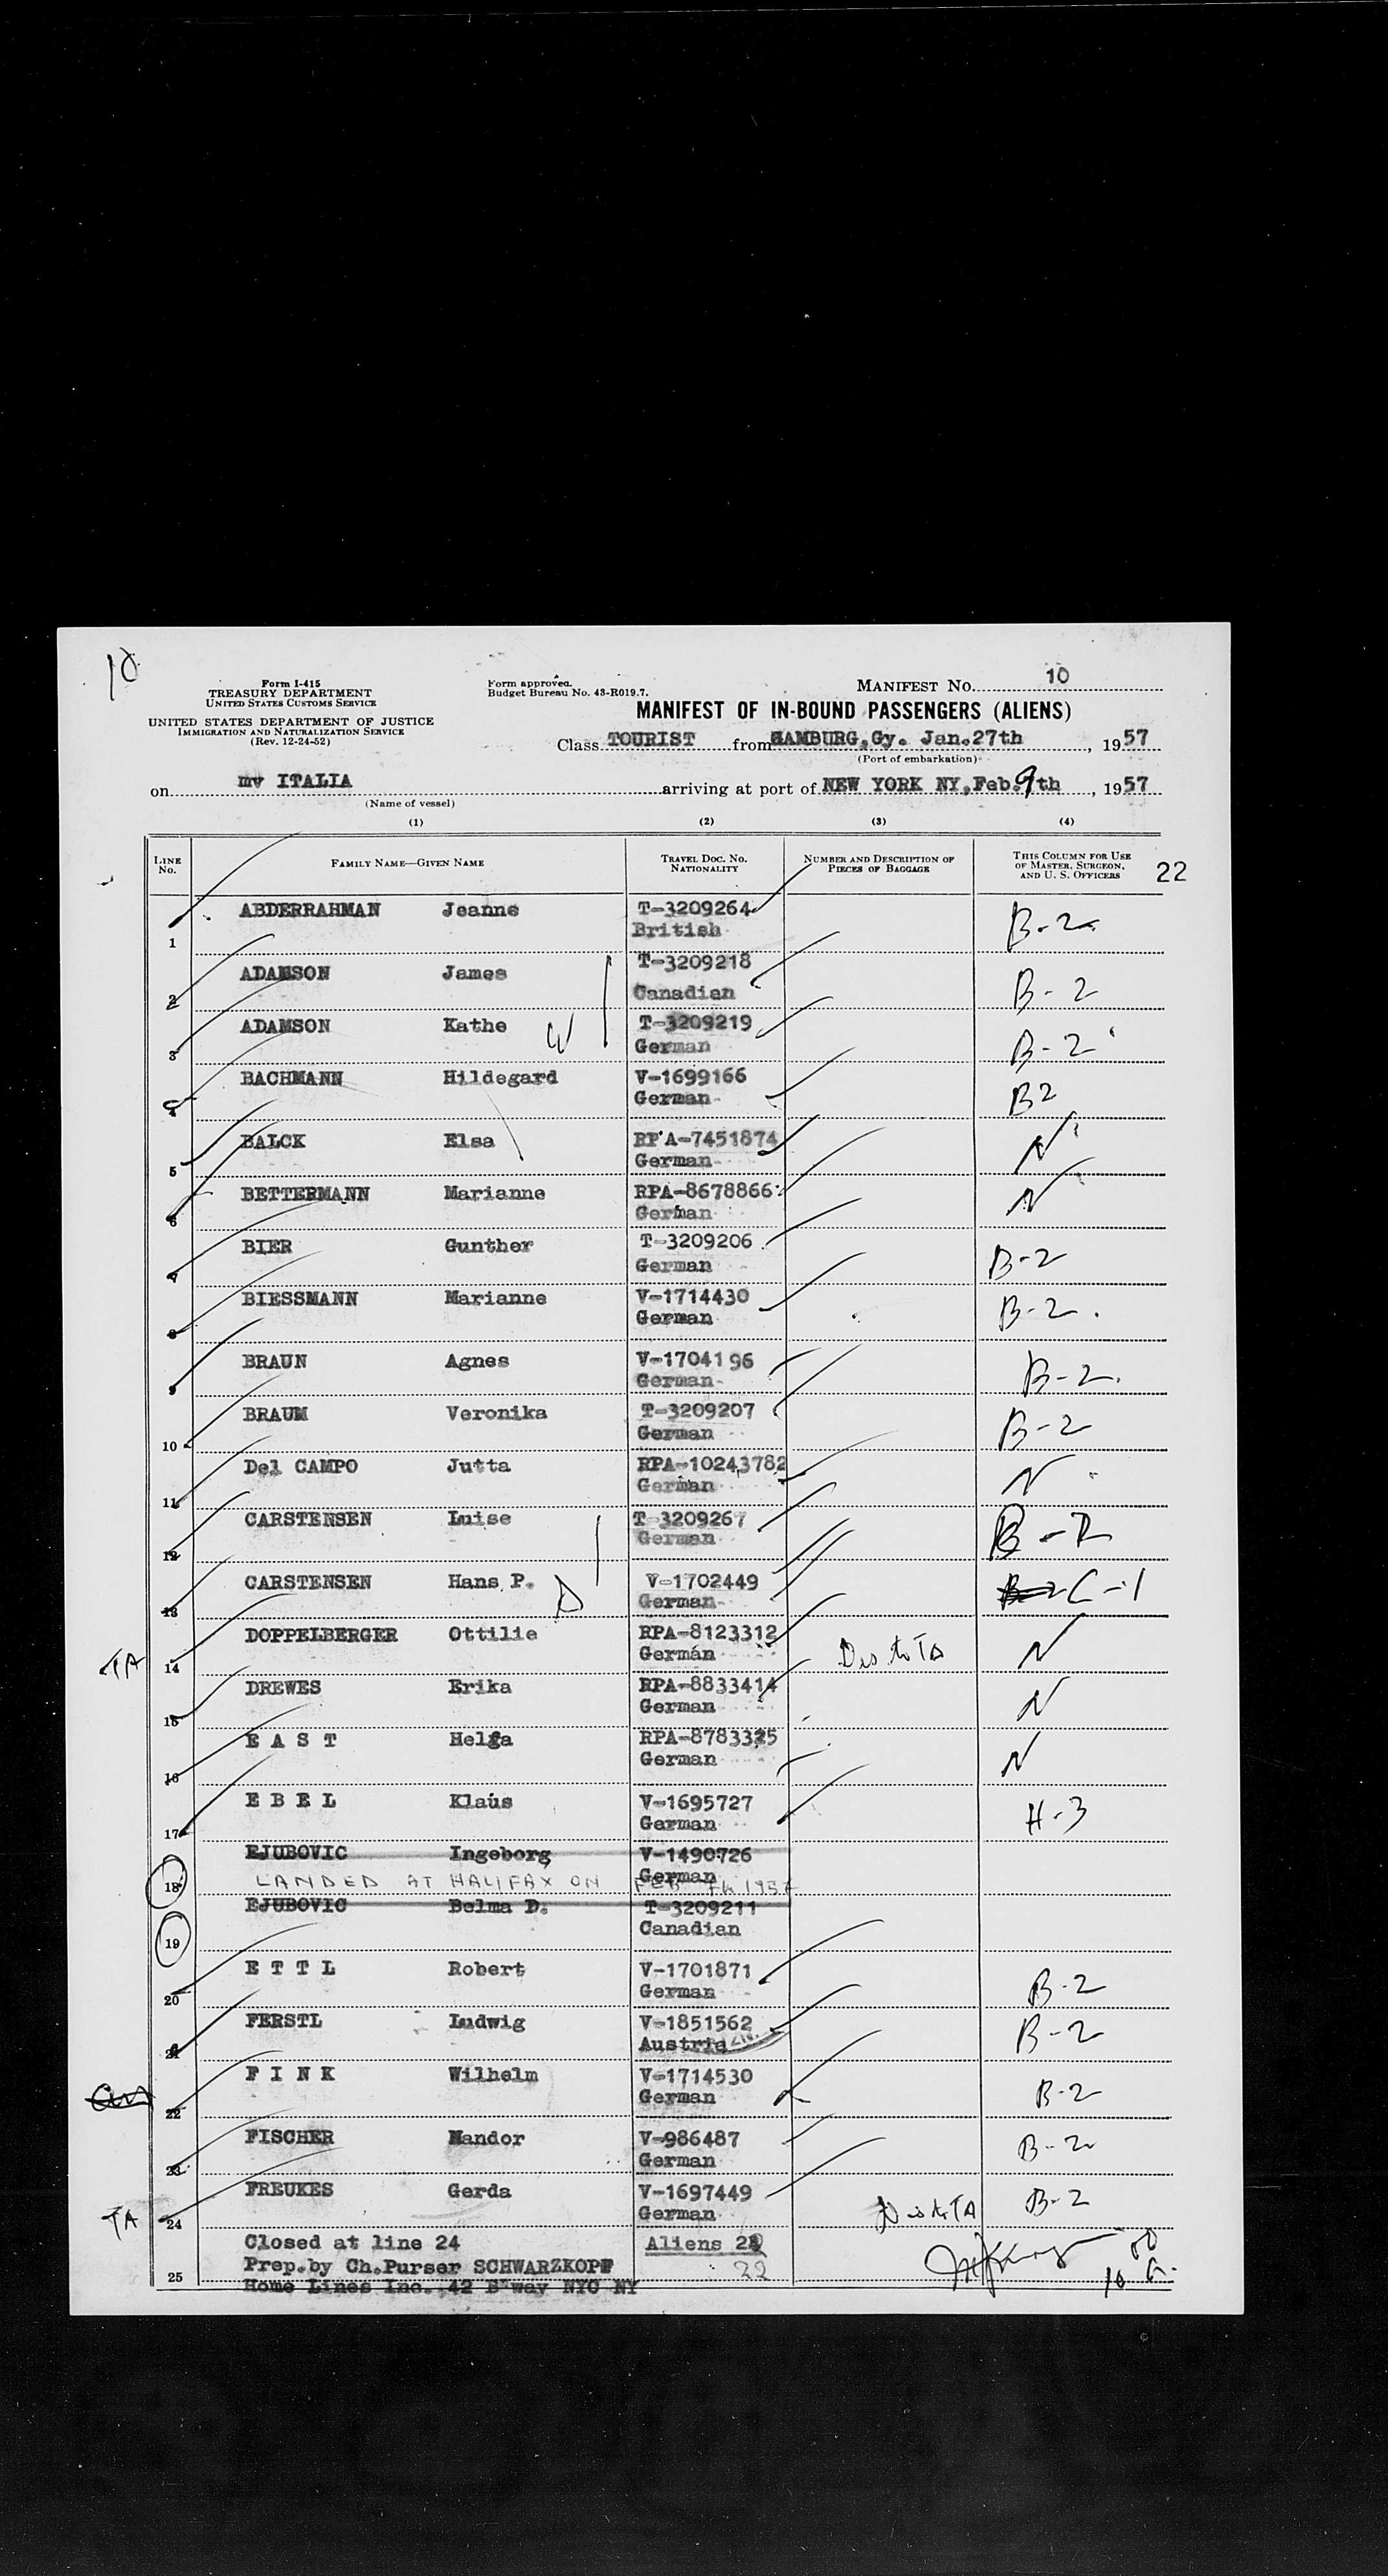 10
Form I-415
TREASURY DEPARTMENT
UNITED STATES CUSTOMS SERVICE
UNITED STATES DEPARTMENT OF JUSTICE
IMMIGRATION AND NATURALIZATION SERVICE
(Rev. 12-24-52)
Form approved.
Budget Bureau No. 43-R019.7.
MANIFEST NO. 10
MANIFEST OF IN-BOUND PASSENGERS (ALIENS)
Class TOURIST from HAMBURG, Gy. Jan. 27th, 1957
(Port of embarkation)
on mv ITALIA arriving at port of NEW YORK NY, Feb. 9th, 1957
(Name of vessel)
(1) (2) (3) (4)
LINE No. FAMILY NAME—GIVEN NAME TRAVEL DOC. NO. NATIONALITY NUMBER AND DESCRIPTION OF PIECES OF BAGGAGE THIS COLUMN FOR USE OF MASTER, SURGEON, AND U. S. OFFICERS 22
1 ABDERRAHMAN Jeanne T-3209264 British B-2
2 ADAMSON James T-3209218 Canadian B-2
3 ADAMSON Kathe W T-3209219 German B-2
4 BACHMANN Hildegard V-1699166 German B2
5 BALCK Elsa RPA-7451874 German N
6 BETTERMANN Marianne RPA-8678866 German N
7 BIER Gunther T-3209206 German B-2
8 BIESSMANN Marianne V-1714430 German B-2
9 BRAUN Agnes V-1704196 German B-2
10 BRAUM Veronika T-3209207 German B-2
11 Del CAMPO Jutta RPA-10243782 German N
12 CARSTENSEN Luise T-3209267 German B-2
13 CARSTENSEN Hans P. D V-1702449 German B-2 C-1
TA 14 DOPPELBERGER Ottilie RPA-8123312 German Dis to TA N
15 DREWES Erika RPA-8833414 German N
16 E A S T Helga RPA-8783325 German N
17 E B E L Klaus V-1695727 German H-3
18 EJUBOVIC Ingeborg V-1490726 German
LANDED AT HALIFAX ON FEB 7th 1957
19 EJUBOVIC Belma D. T-3209211 Canadian
20 E T T L Robert V-1701871 German B-2
21 FERSTL Ludwig V-1851562 Austria B-2
22 F I N K Wilhelm V-1714530 German B-2
23 FISCHER Nandor V-986487 German B-2
TA 24 FREUKES Gerda V-1697449 German Dis to TA B-2
Closed at line 24 Aliens
Prep.by Ch.Purser SCHWARZKOPF 22
25 Home Lines Inc. 42 B'way NYC NY 10